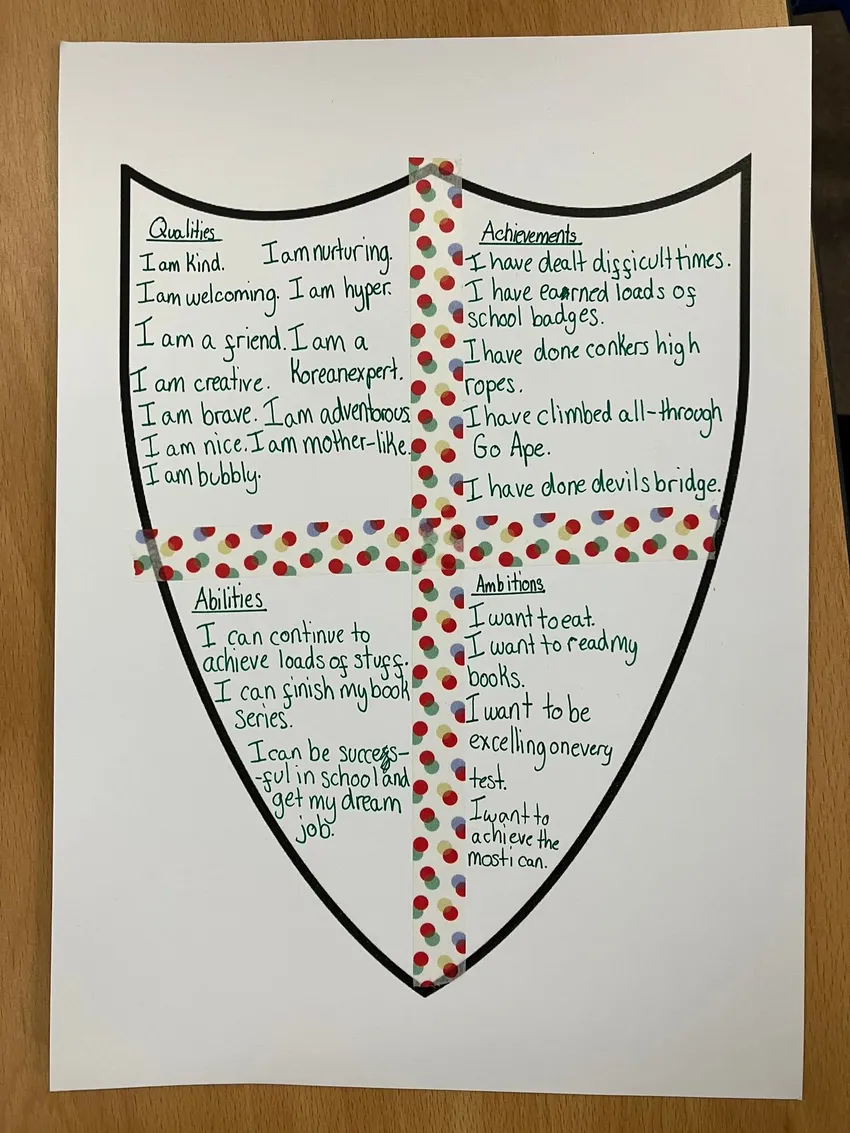 Qualities
I am kind. I am nurturing.
I am welcoming. I am hyper.
I am a friend. I am a
Korean expert.
I am creative.
I am brave. I am adventorous
I am nice. I am mother-like.
I am bubbly.
Achievements
I have dealt difficult times.
I have earned loads of
school badges.
I have done conkers high
ropes.
I have climbed all-through
Go Ape.
I have done devils bridge.
Abilities
I can continue to
achieve loads of stuff.
I can finish my book
series.
I can be success-
-ful in school and
get my dream
job.
Ambitions
I want to eat.
I want to read my
books.
I want to be
excelling on every
test.
I want to
achieve the
most i can.